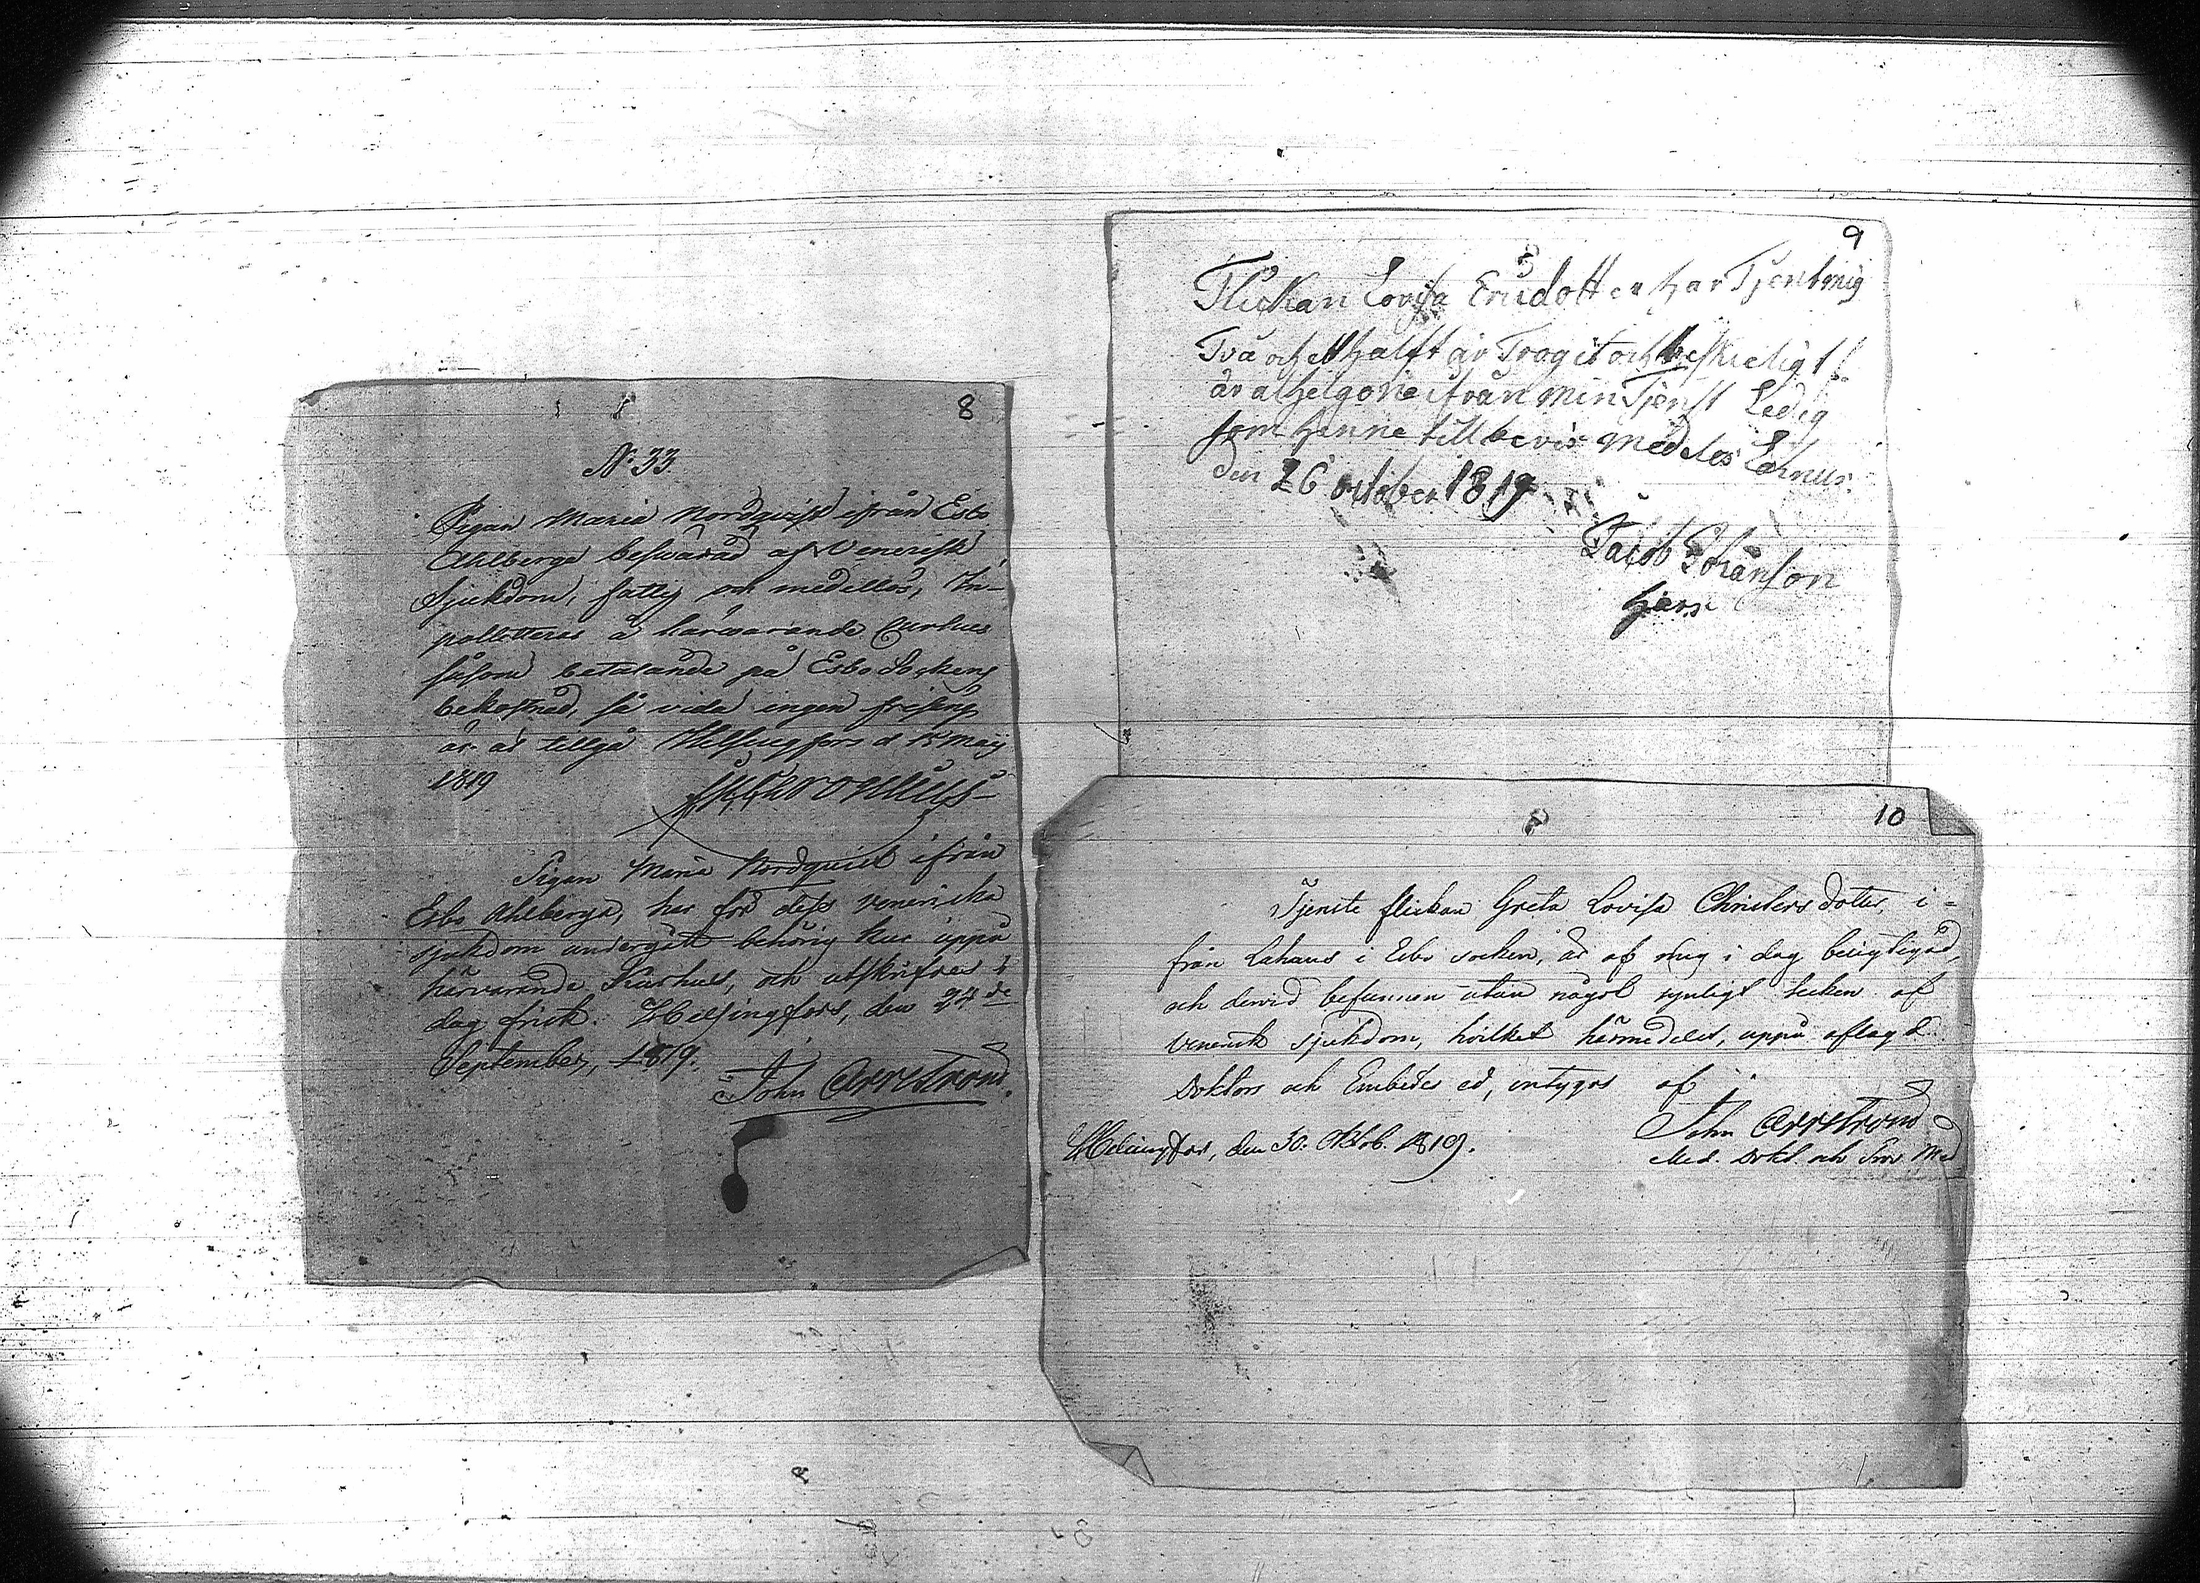 8
N: 33
Pigan Maria Nordqvist ifrån Esbo
Ahlberga beswärad af Venerisk
Sjukdom, fattig och medellös, In-
polletteras å härvarande Curhus
såsom betalande på Esbo Sockens
bekostnad, så vida ingen frisäng
är att tillgå Helsingfors d Maij
1819
Pigan Maria Nordquist ifrån
Esbo Ahlberga, har för dess veneriska
sjukdom undergått behörig kur uppå
härvarande Kurhus, och utskrifves i
dag frisk. Helsingfors, den 24de
September, 1819.
John Arrstrom.
9
Flickan Lovisa Ersdotter har Tjent mig
Två och ett halft år Trogit och beskieligt
är a helgone ifrån min Tjenst Ledig
som henne till bevis Medelas
den 26 october 1819
Jacob Johanson
10
Tjenste flickan Greta Lovisa Christersdotter, i-
från Lahnus i Esbo socken, är af mig i dag besigtigad,
och dervid befunnen utan något synligt tecken af
Venerisk sjukdom, hvilket härmedelst, uppå aflagd
Doktors och Embetes ed, intygas af
John Arrstrom
Med. Dokt. och Prov. Med
Helsingfors, den 30. Oktob. 1819.